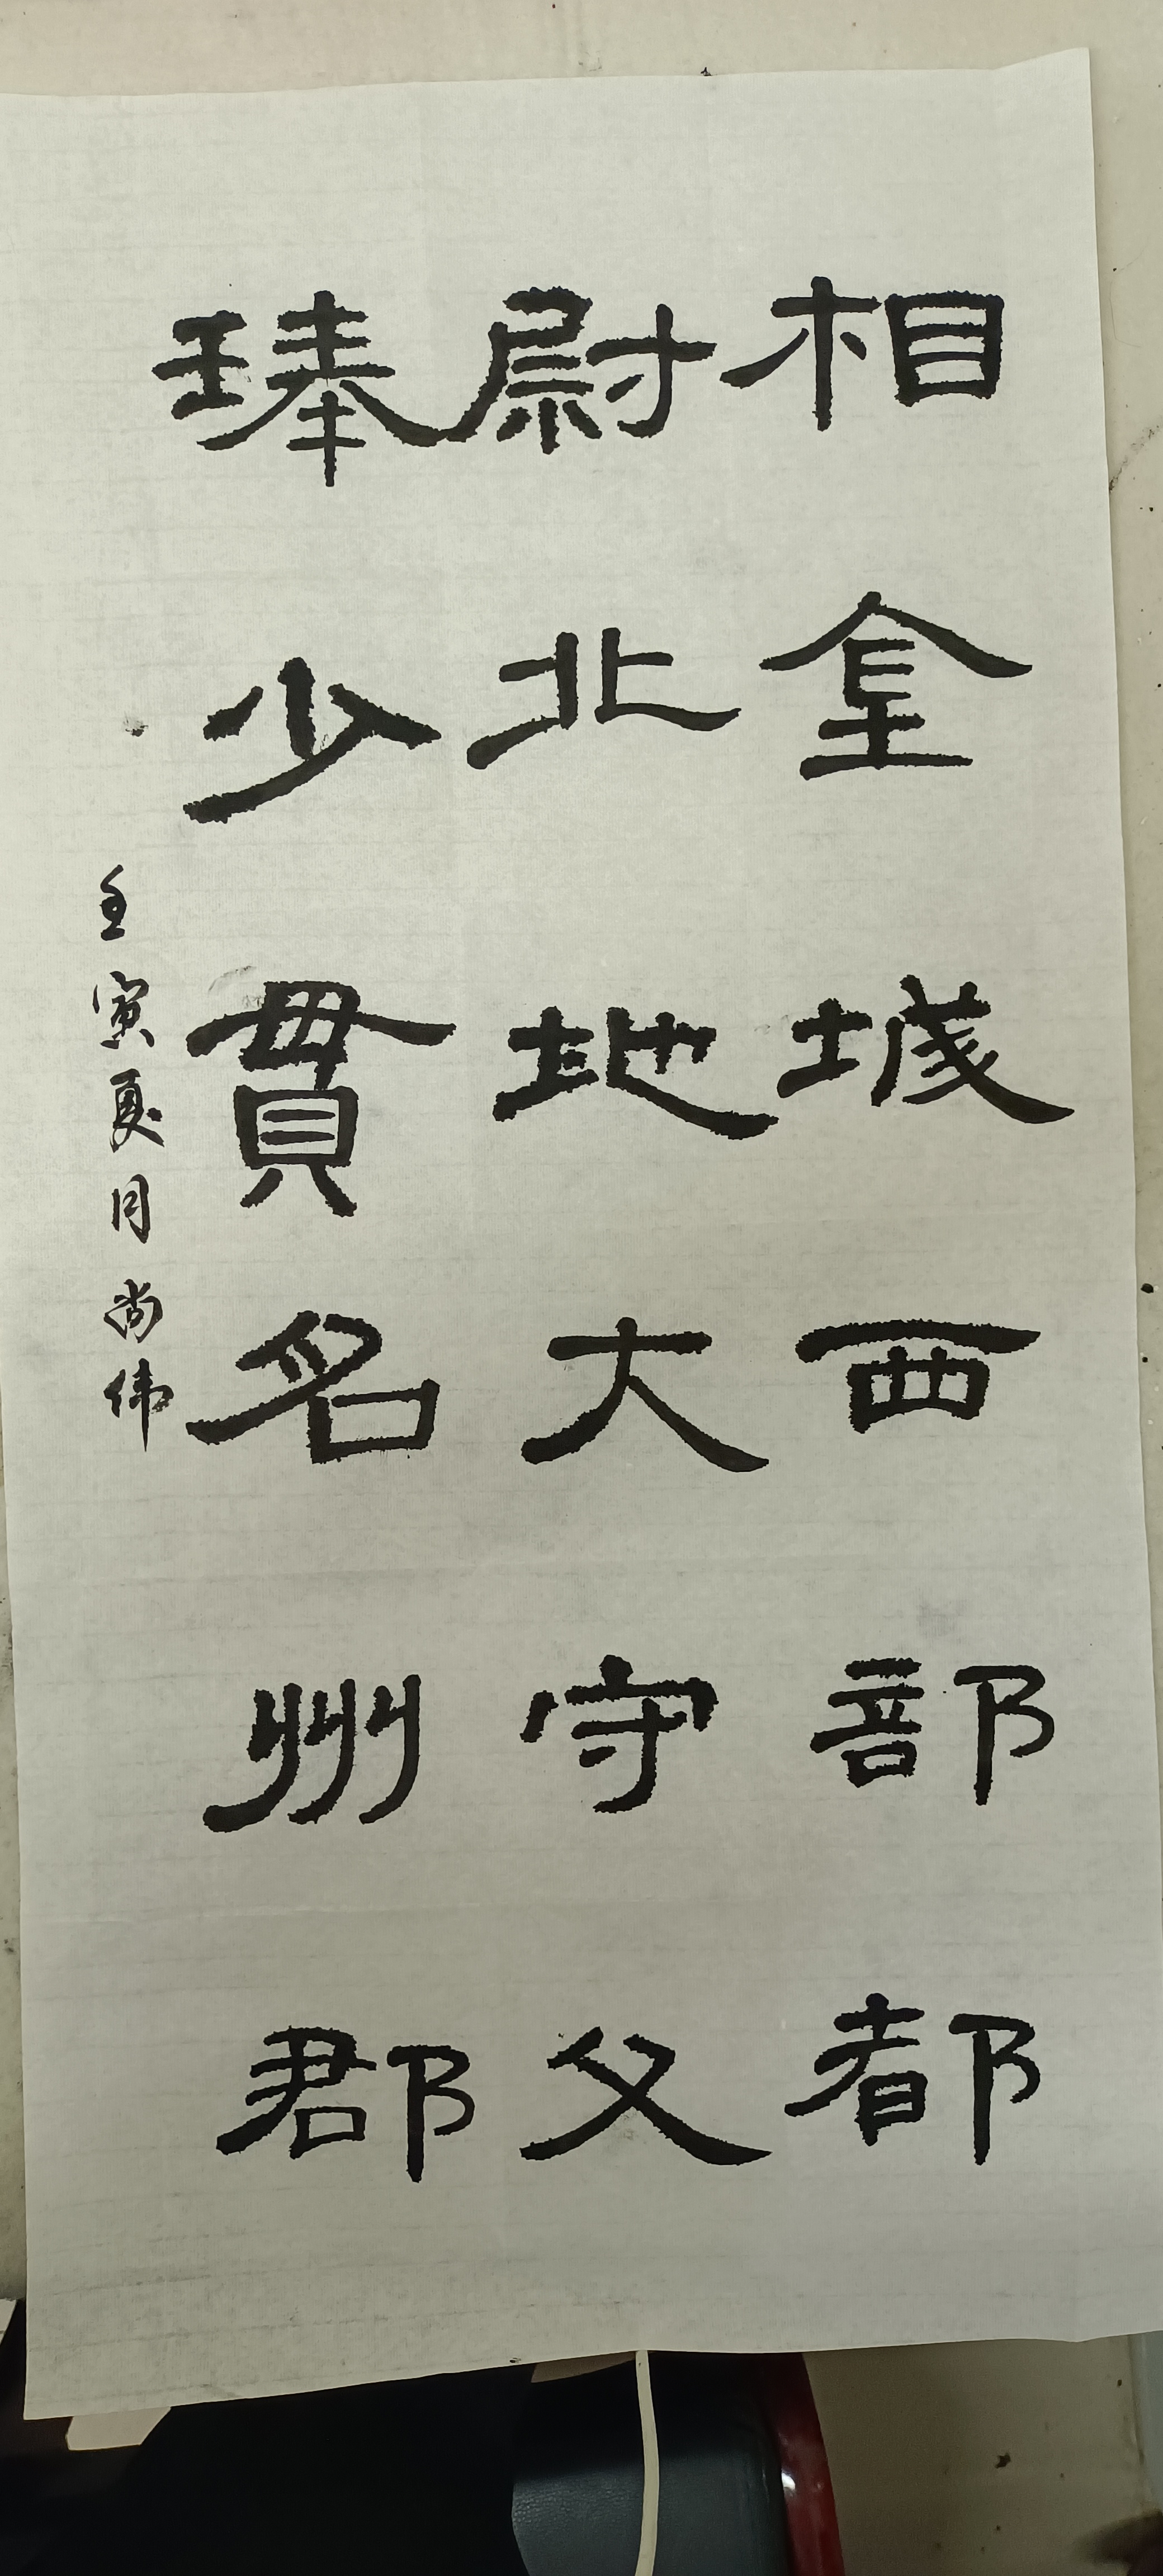 相金城西部都
尉北地大守父
琫少貫名州郡
壬寅夏月尚伟